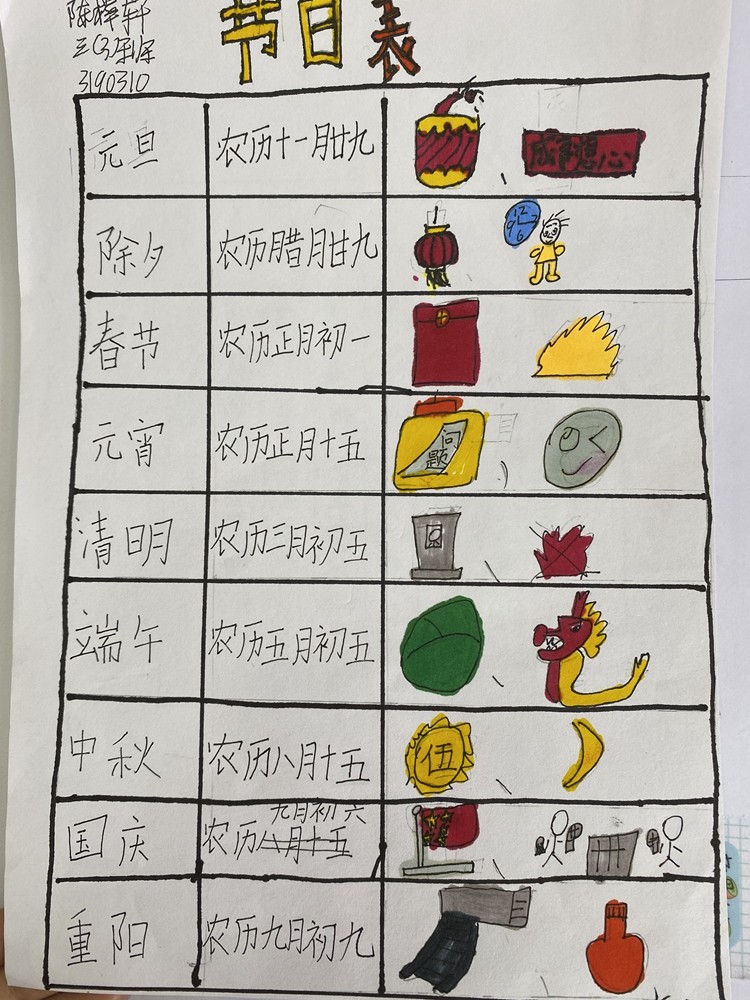 节日表
3190310
元旦 农历十一月廿九 心想事成
除夕 农历腊月廿九 12 9 6
春节 农历正月初一
元宵 农历正月十五 问题
清明 农历三月初五
端午 农历五月初五
中秋 农历八月十五 伍
九月初六
国庆 农历八月十五
重阳 农历九月初九